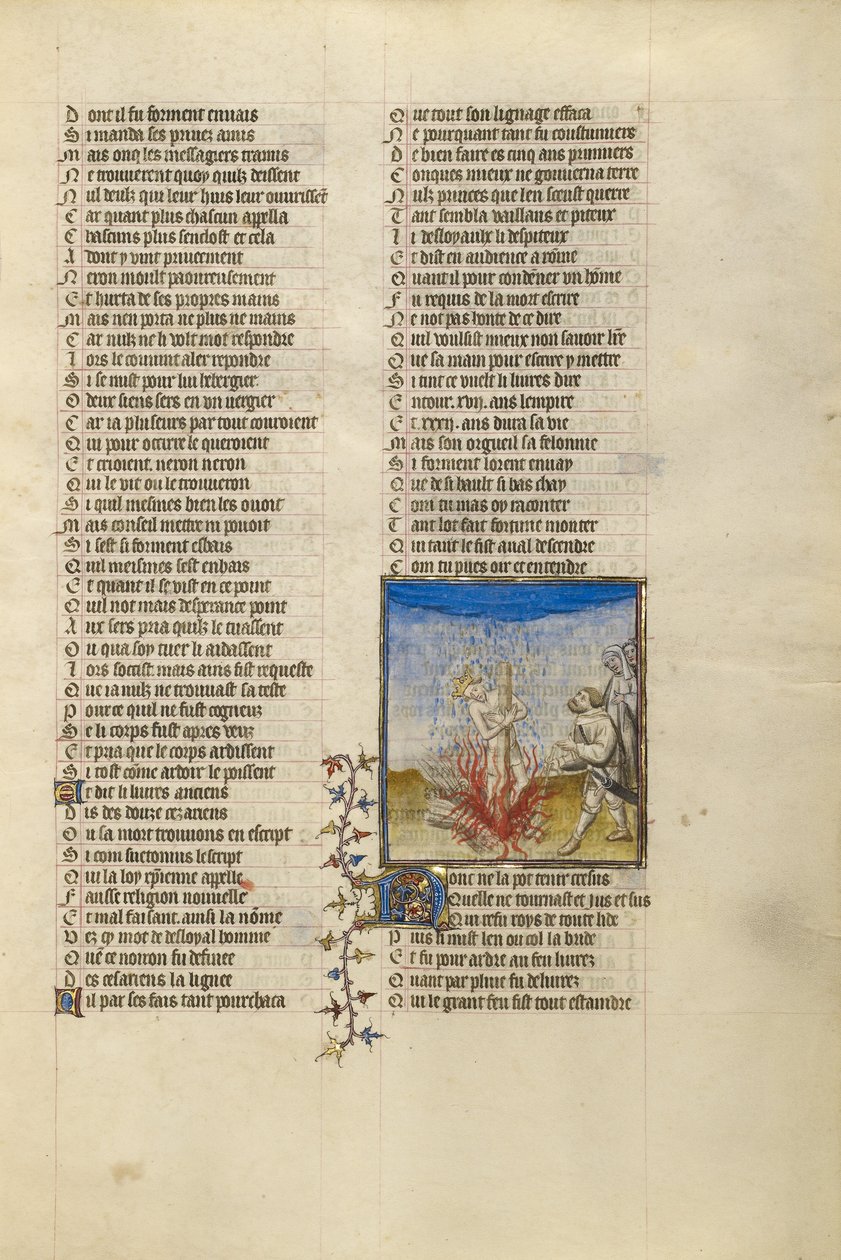 Dont il fu forment envais
Si manda ses privez amis
Mais onq les messagiers tramis
Ne trouverent quoy quilz deissent
Nul deulz qui leur huis leur ouvrissent
Car quant plus chascun apella
Chascuns plus senclost et cela
Adont y vint priveement
Neron moult paoureusement
Et hurta de ses propres mains
Mais nen porta ne plus ne mains
Car nulz ne li volt mot respondre
Lors le couvint aler repondre
Si se mist pour lui hebergier
O deux siens sers en un vergier
Car ia pluseurs par tout couroient
Qui pour occirre le queroient
Et crioient neron neron
Qui le vit ou le trouveron
Si quil mesmes bien les ouoit
Mais conseil mettre ni pouoit
Si sest si forment esbais
Quil meismes sest enhais
Et quant il se vist en ce point
Quil not mais desperance point
Aux sers pria quilz le tuassent
Ou qua soy tuer li aidassent
Lors soccist mais ains fist requeste
Que ia nulz ne trouvast sa teste
Pour ce quil ne fust cogneuz
Se li corps fust apres veuz
Et pria que le corps ardissent
Si tost come ardoir le poissent
Et dit li livres anciens
Dis des douze cezariens
Ou sa mort trouvons en escript
Si com suetonius lescript
Qui la loy xpienne apelle
Fausse religion nouvelle
Et mal faisant. ainsi la nome
Vez cy mot de desloyal homme
Que ce noiron fu definee
Des cesariens la lignee
Cil par ses fais tant pourchaca
Que tout son lignage effaca
Ne pourquant tant fu coustumiers
De bien faire es cinq ans prumiers
Conques mieux ne gouverna terre
Nulz princes que len sceust querre
Tant sembla vaillans et piteux
Li desloyaulx li despiteux
Et dist en audience a rome
Quant il pour condener un home
Fu requis de la mort escrire
Ne not pas honte de ce dire
Quil voulsist mieux non savoir lre
Que sa main pour escire y mettre
Si tint ce vuelt li livres dire
Entour .xvij. ans lempire
Et .xxxij. ans dura sa vie
Mais son orgueil sa felonnie
Si forment lorent envay
Que de si hault si bas chay
Com tu mas oy raconter
Tant lot fait fortune monter
Qui tant le fist aval descendre
Com tu pues oir et entendre
Nont ne la pot tenir cresus
Quelle ne tournast et jus et sus
Qui refu roys de toute lide
Puis li mist len ou col la bride
Et fu pour ardre au feu livrez
Quant par pluie fu delivrez
Qui le grant feu fist tout estaindre